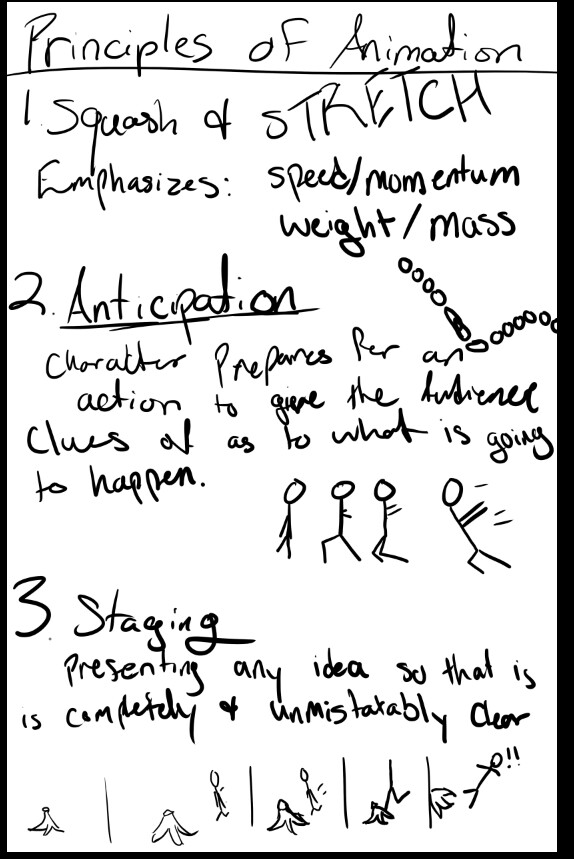 Principles of Animation
1. Squash & STRETCH
Emphasizes: speed/momentum
weight/mass
2. Anticipation
Character Prepares for an
action to give the Audience
Clues of as to what is going
to happen.
3. Staging
Presenting any idea so that is
is completely & unmistakably clear
!!